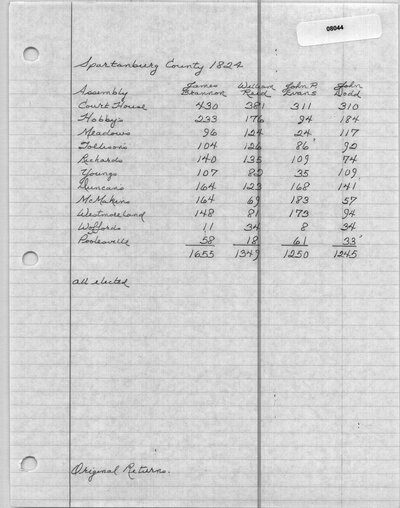 08044
Spartanburg County 1824
James William John P. John
Assembly Brannon Reid Evans Dodd
Court House 430 381 311 310
Hobby's 233 176 94 184
Meadows 96 124 24 117
Tollesons 104 126 86 92
Richards 140 135 109 74
Youngs 107 82 35 109
Duncans 164 123 168 141
McMakins 164 69 183 57
Westmoreland 148 81 173 94
Woffords 11 34 8 34
Poolesville 58 18 61 33
1655 1349 1250 1245
all elected
Original Returns.